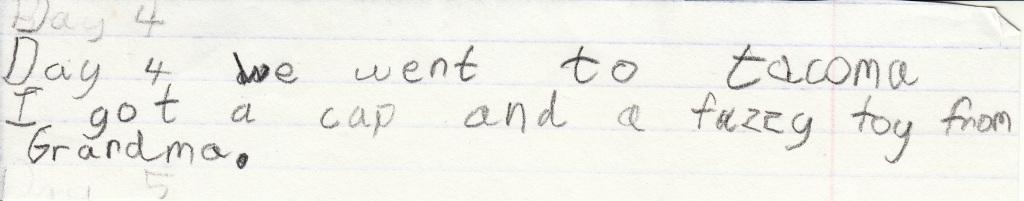 Day 4
Day 4 We went to tacoma
I got a cap and a fuzzy toy from
Grandma.
Day 5